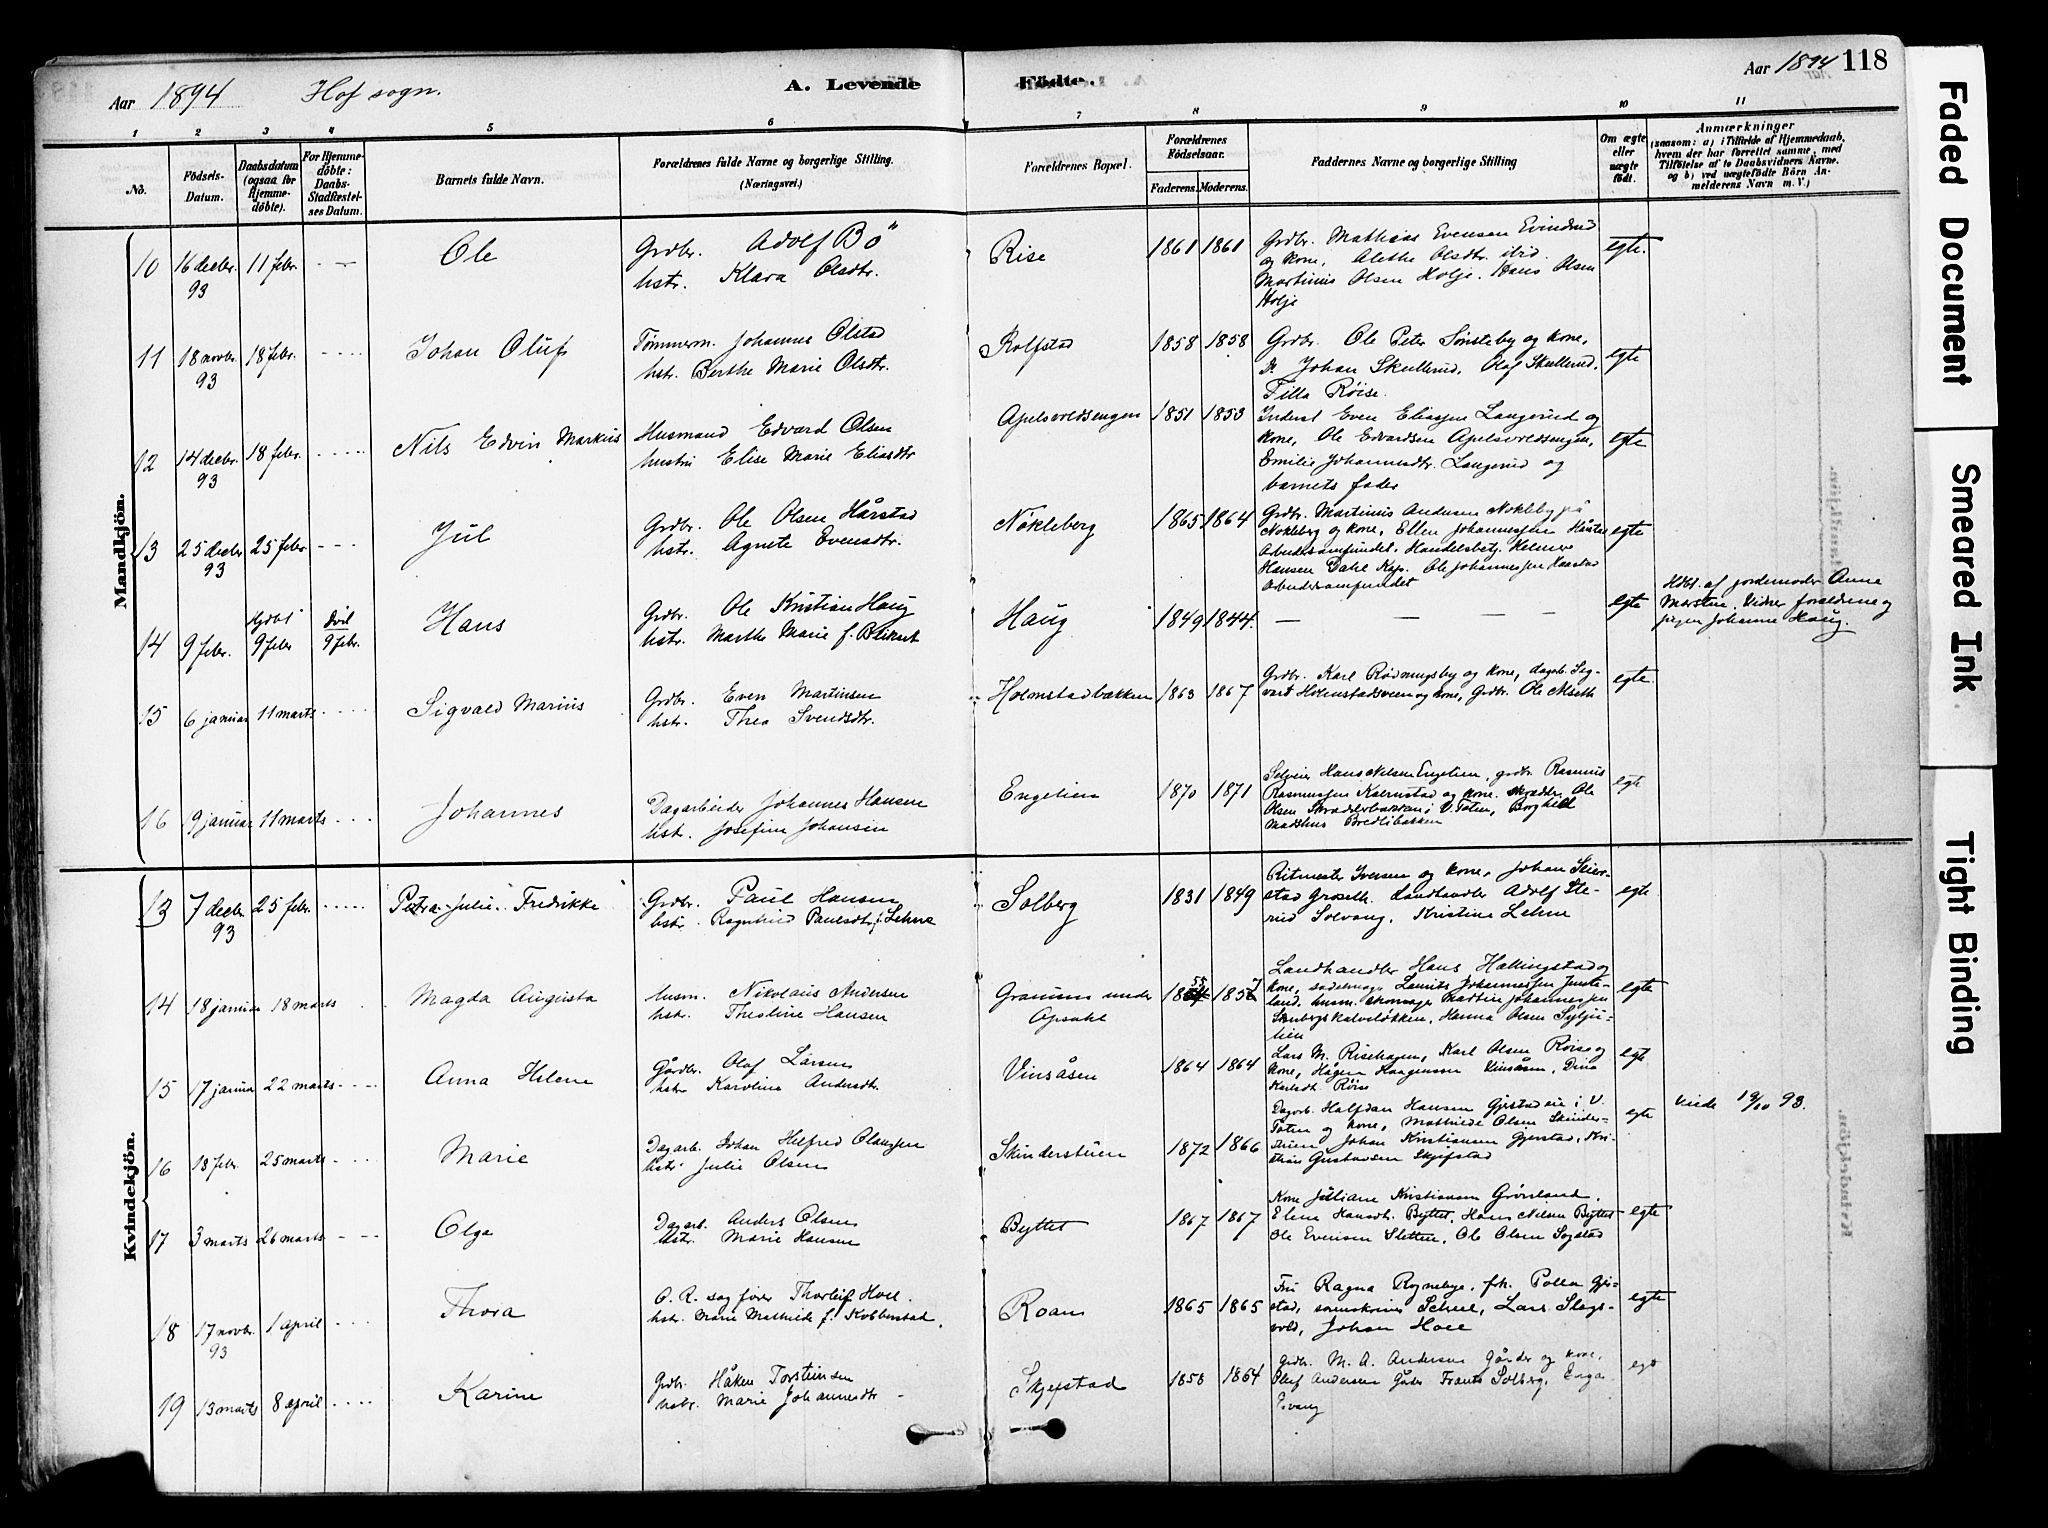 Aar 1894 Hof sogn. A. Levende Födte. Aar 1894 118
1 2 3 4 5 6 7 8 9 10 11
No.
Födsels-
Datum.
Daabsdatum
(ogsaa for
Hjemme-
döbte).
For Hjemme-
döbte:
Daabs-
Stadfæstel-
ses Datum.
Barnets fulde Navn.
Forældrenes fulde Navne og borgerlige Stilling.
(Næringsvei.)
Forældrenes Bopæl.
Forældrenes
Födselsaar.
Faderens. Moderens.
Faddernes Navne og borgerlige Stilling
Om ægte
eller
uægte
födt.
Anmærkninger
(saasom: a) i Tilfælde af Hjemmedaab,
hvem der har forrettet samme, med
Tilföielse af to Daabsvidners Navne,
og b) ved uægtefödte Börn An-
melderens Navn m. V.)
Mandkjön.
10 16 decbr. 93 11 febr. Ole
Grdbr. Adolf Bö
hstr. Klara Olsdtr.
Rise 1861 1861
Grdbr. Mathias Evensen Evindrud
og kone, Alethe Olsdtr. ibid.
Martinius Olsen Holje. Hans Olsen
Holje
egte.
11 18 novbr. 93 18 febr. Johan Oluf
Tömmerm. Johannes Olstad
hstr. Berthe Marie Olsdtr.
Rolfstad 1858 1858
Grdbr. Ole Peter Sönsteby og kone,
Johan Skullerud, Olaf Skullerud,
Tilla Röise.
egte
12 14 decbr. 93 18 febr. Nils Edvin Markus
Husmand Edvard Olsen
hustru Elise Marie Eliasdtr
Apelsvoldsengen 1851 1853
Inderst Even Eliassen Langerud og
kone, Ole Edvardsen Apelsvoldsengen,
Emilie Johannesdtr. Langerud og
barnets fader
egte
13 25 decbr. 93 25 febr. Jul
Grdbr. Ole Olsen Hårstad
hstr. Agnete Evensdtr.
Nökleberg 1865 1864
Grdbr. Martinius Andersen Nökleby på
Nökleberg og kone, Ellen Johannessen
Arbeidersamfundet, Handelsbetj. Helmer
Hansen Dahl Kap. Ole Johannessen Haarstad
Arbeidersamfundet
egte
14 9 febr. Hjdbt 9 febr 9 febr. Hans
Grdbr. Ole Kristian Haug
hstr. Marthe Marie f. Blikset
Haug 1849 1844.
egte
Hdbt. af jordemoder Anne
Marstein. Vidner forældrene og
pigen Johanne Haug.
15 6 januar 11 marts Sigvald Marius
Grdbr. Even Martinsen
hstr. Thea Svendsdtr.
Holmstadbakken 1863 1867
Grdbr. Karl Rödningsby og kone, dagarb. Sig-
vart Holmstadsveen og kone, Grdbr. Ole Alseth
egte.
16 9 januar 11 marts Johannes
Dagarbeider Johannes Hansen
hst. Josefine Johansen
Engelien 1870 1871
Selveier Hans Nilsen Engelien, grdbr. Rasmus
Rasmussen Kolrustad og kone. skrædder Ole
Olsen Skrædderbakken i V. Toten, Borghild
Madshus Bredlibakken
egte
Kvindekjön.
13 7 decbr. 93 25 febr. Petra Julie Fredrikke
Grdbr. Paul Hansen
hstr. Ragnhild Paulsdtr f. Lehne
Solberg 1831 1849
Ritmester Iversen og kone, Johan Skier-
stad Groseth. Landhandler Adolf Ste-
rud Solvang, Kristine Lehne
egte
14 18 januar 18 marts Magda Augusta
husm. Nikolaus Andersen
hstr. Thestine Hansen
Granum under
Apsahl
1855 1857
Landhandler Hans Hallingstad og
kone, sadelmager Laurits Johannessen
land, husm. skomager Martin Johannessen
Stenbergskalvelökken, Hanna Olsen Syljü-
lien
egte
15 17 januar 22 marts Anna Helene
Gårdbr. Olaf Larsen
hstr Karoline Andersdtr.
Vinsåsen 1864 1864
Lars M. Risehagen, Karl Olsen Röise og
kone, Hågen Haagensen Vinsåsen, Dina
Karlsdt. Röise
egte
16 13 febr. 25 marts Marie
Dagarb. Johan Helfred Olaussen
hstr Julie Olsen
Skinderstuen 1872 1866
Dagarb. Halfdan Hansen Gjerstadeie i V.
Toten og kone, Mathilde Olsen Skinder-
stuen Johan Kristiansen Gjerstad, Kri-
stian Gustavsen Skjefstad
egte
Viede 19/10 93.
17 3 marts 26 marts Olga
Dagarb. Anders Olsen
hstr. Marie Hansen
Byttet 1867 1867
Kone Juliane Kristiansen Grönland,
Eline Hansdtr. Byttet, Hans Nilsen Byttet
Ole Evensen Sletten, Ole Olsen Sogstad
egte
18 17 novbr. 93 1 april Thora
O. R. sagförer Thorleif Hoel.
hstr. Marie Mathilde f. Kobberstad.
Roan 1865 1865
Fru Ragna Rognebye, frk. Polla Gjes-
stad, sorenskriver Scheel, Lars Slags-
vold, Johan Hoel
egte
19 13 marts 8 april Karine
Grdbr. Håken Torsteinsen
hstr. Marie Johannesdtr
Skjefstad 1858 1864
Grdbr. M. A. Andersen Gårder og kone,
Oluf Andersen Gårder Frants Solberg,
egt
Faded Document
Smeared Ink
Tight Binding